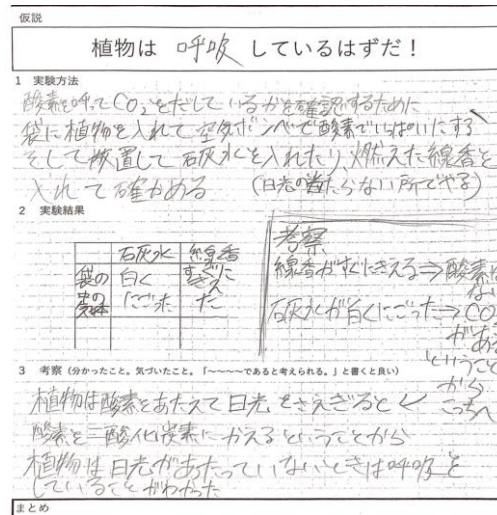 仮説
植物は 呼吸 しているはずだ!
1 実験方法
酸素を呼ってCO₂をだしているかを確認するために
袋に植物を入れて空気ボンベで酸素でいっぱいにする
そして放置して石灰水を入れたり、燃えた線香を
入れて確かめる (日光の当たらない所でやる)
2 実験結果
石灰水 線香
袋の中の気体 白くにごった すぐにきえた
考察
線香がすぐにきえる⇒酸素はない
石灰水が白くにごった⇒CO₂がある
ということから
こっちへ
3 考察(分かったこと。気づいたこと。「~~~~~であると考えられる。」と書くと良い)
植物は酸素をあたえて日光をさえぎると
酸素を二酸化炭素にかえるということから
植物は日光があたっていないときは呼吸を
していることがわかった
まとめ